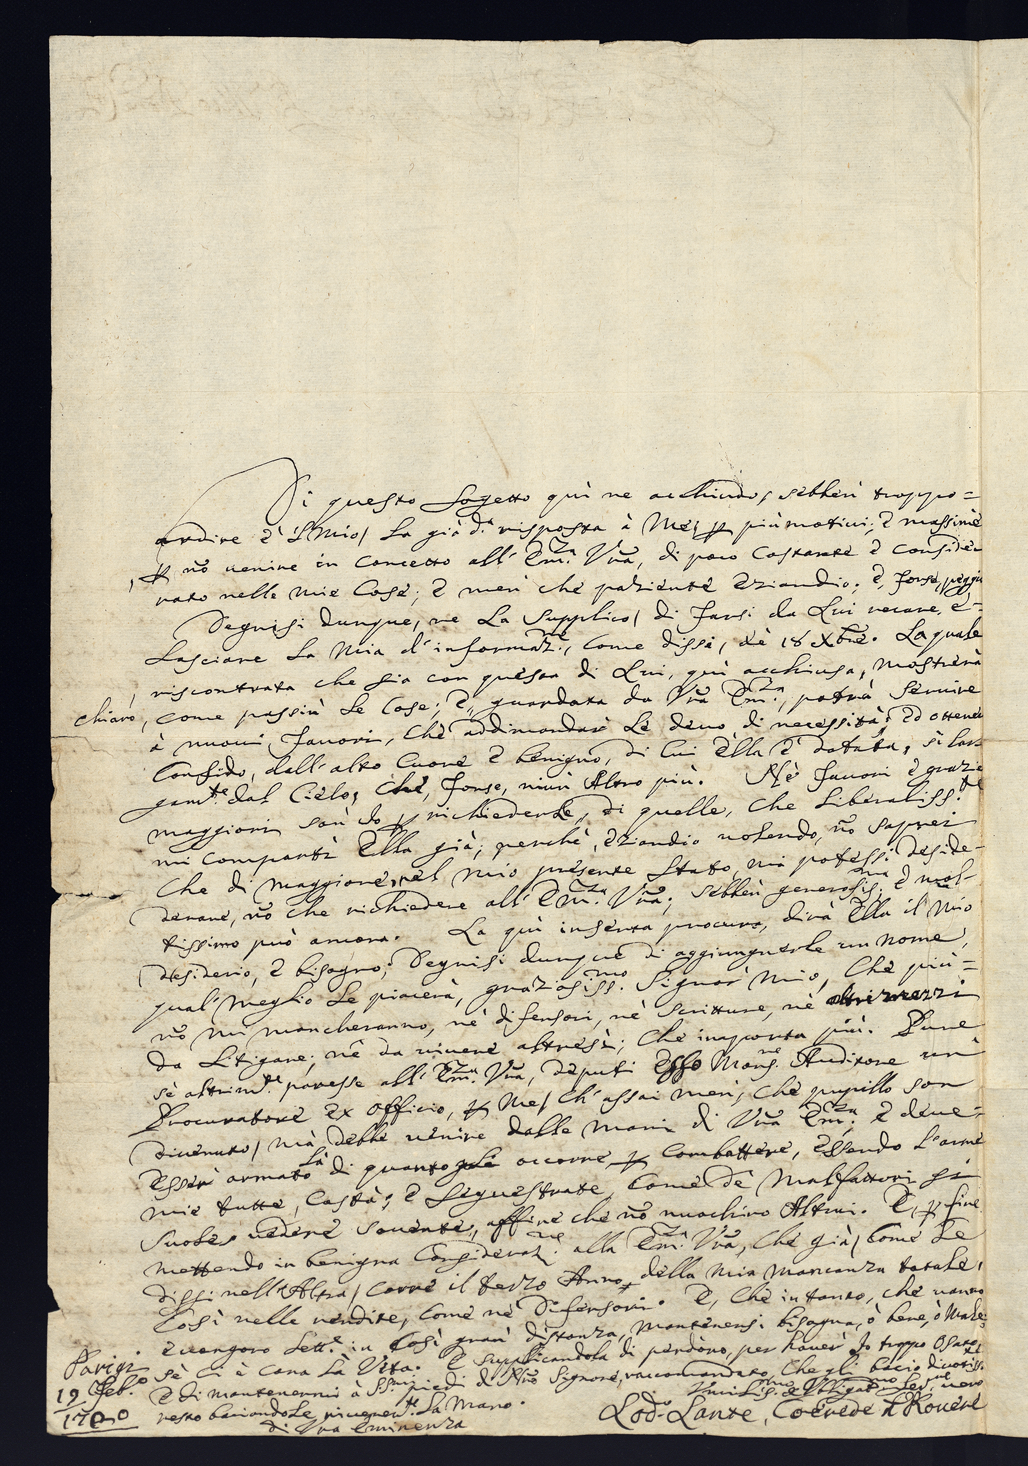 Di questo sogetto quì ne acchiudo, sebben troppo=
ardire è 'l Mio/ La già d.ª risposta à Me, ꝑ più motivi; è massime
ꝑ nõ venire in concetto all' Em.za Vr̃a, di poco Costante è conside-
rato nelle mie Cose; è men che paziente eziandio; è, forse, peggio
Degnisi dunque, ne La Supplico, di farsi da Lui recare, è=
Lasciare La Mia d' informaz.ne, come dissi, dè 18 Xbre. La quale
riscontrata che sia con questa di Lui, quì acchiusa, mostrerà
chiaro, come passin' Le Cose; è, guardata da Vr̃a Em.za, potrà servire
à nuovi favori, che addimandar Le devo di necessità; ed ottener
Confido, dall' alto Cuore è benigno, di Cui Ella è dotata, sì lar-
gam.te dal Cielo, Chè, forse, niun Altro più. Nè favori è grazie
maggiori son' Io ꝑ richiederle, di quelle, che Liberaliss.te
mi compartì Ella già; perchè, eziandio volendo, nõ saprei
Che di maggiore, nel mio presente Stato, mi potessi deside-
derare, nõ che richiedere all' Em.za Vr̃a; sebben generosis.ma è mol-
tissimo può ancora. La quì inserta procura, dirà Ella il Mio
desiderio, è bisogno; Degnisi dunque di aggiungnerle un Nome,
qual' Meglio Le piacerà, graziosiss.mo Signor Mio, Che più=
nõ mi mancheranno, nè difensori, nè Scritture, nè altri mezzi
da Litigare; nè da vivere altresì; Che importa più. Pure
sè altrim.te paresse all' Em.za Vr̃a, deputi Esso Mons.re Auditore un
Procuratore Ex officio, ꝑ Me/ Ch' assai men, che pupillo son
divenuto/ mà debbe venire dalle mani di Vr̃a Em.za; è deve=
Esser armato di quanto Là occorre ꝑ Combattere, Essendo L'arme
mie tutte, Costà; è Sequestrate, Come dè Malfattori si
suole vedere sovente, affine che nõ nuochino Altrui. E, ꝑ fine
mettendo in benigna Consideraz.ne alla Em.za Vr̃a, Che già/ Come Le
dissi nell' Altra/ corre il terzo Anno, della Mia mancanza totale,
Così nelle rendite, Come nè difensori. E, Che intanto, che vanno
è vengono Lett.e in Così gran' distanza, mantenersi bisogna, ò bene, ò male
sè Ci è cara La Vita. E supplicandola di perdono, per haver Io troppo Osato,
è di mantenermi à SS.mi piedi di Nr̃o Signore, raccomandato, Che gli bacio divotiss.te
resto baciandoLe riveren.te La Mano.
di Vr̃a Eminenza
Parigi
19 Feb.o
1700
Umiliss.mo è Obligat.mo Ser.re vero
Lod.o Lante, Coerede d. Rovere